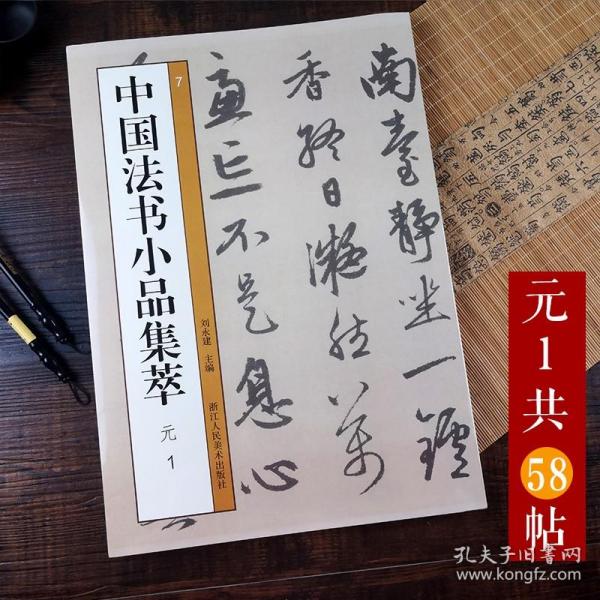 7
中国法书小品集萃
元 1
刘永建 主编
浙江人民美术出版社
南臺静坐一鑪
香終日凝然萬
慮亡不是息心
元1共58帖
孔夫子旧书网
www.kongfz.com